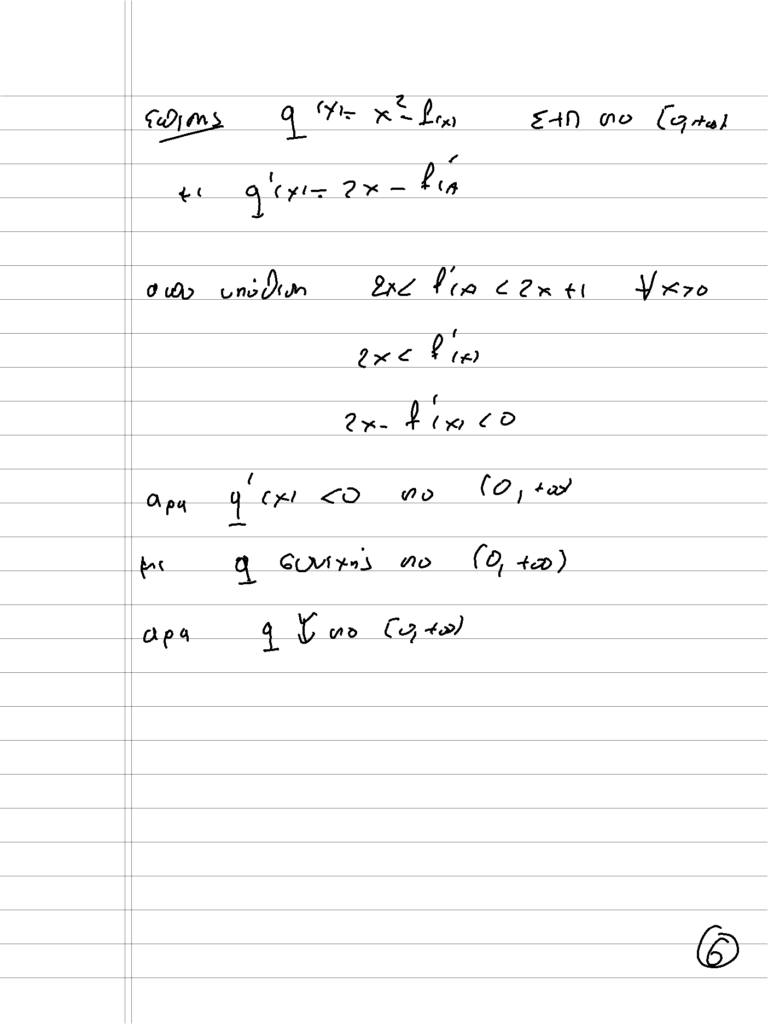 επίσης g(x) = x² - f(x) Σ+Π στο [0,+∞)
με g'(x) = 2x - f'(x)
από υπόθεση 2x < f'(x) < 2x + 1 ∀x>0
2x < f'(x)
2x - f'(x) < 0
αρα g'(x) < 0 στο (0, +∞)
με g συνεχής στο (0, +∞)
αρα g ↓ στο (0, +∞)
6